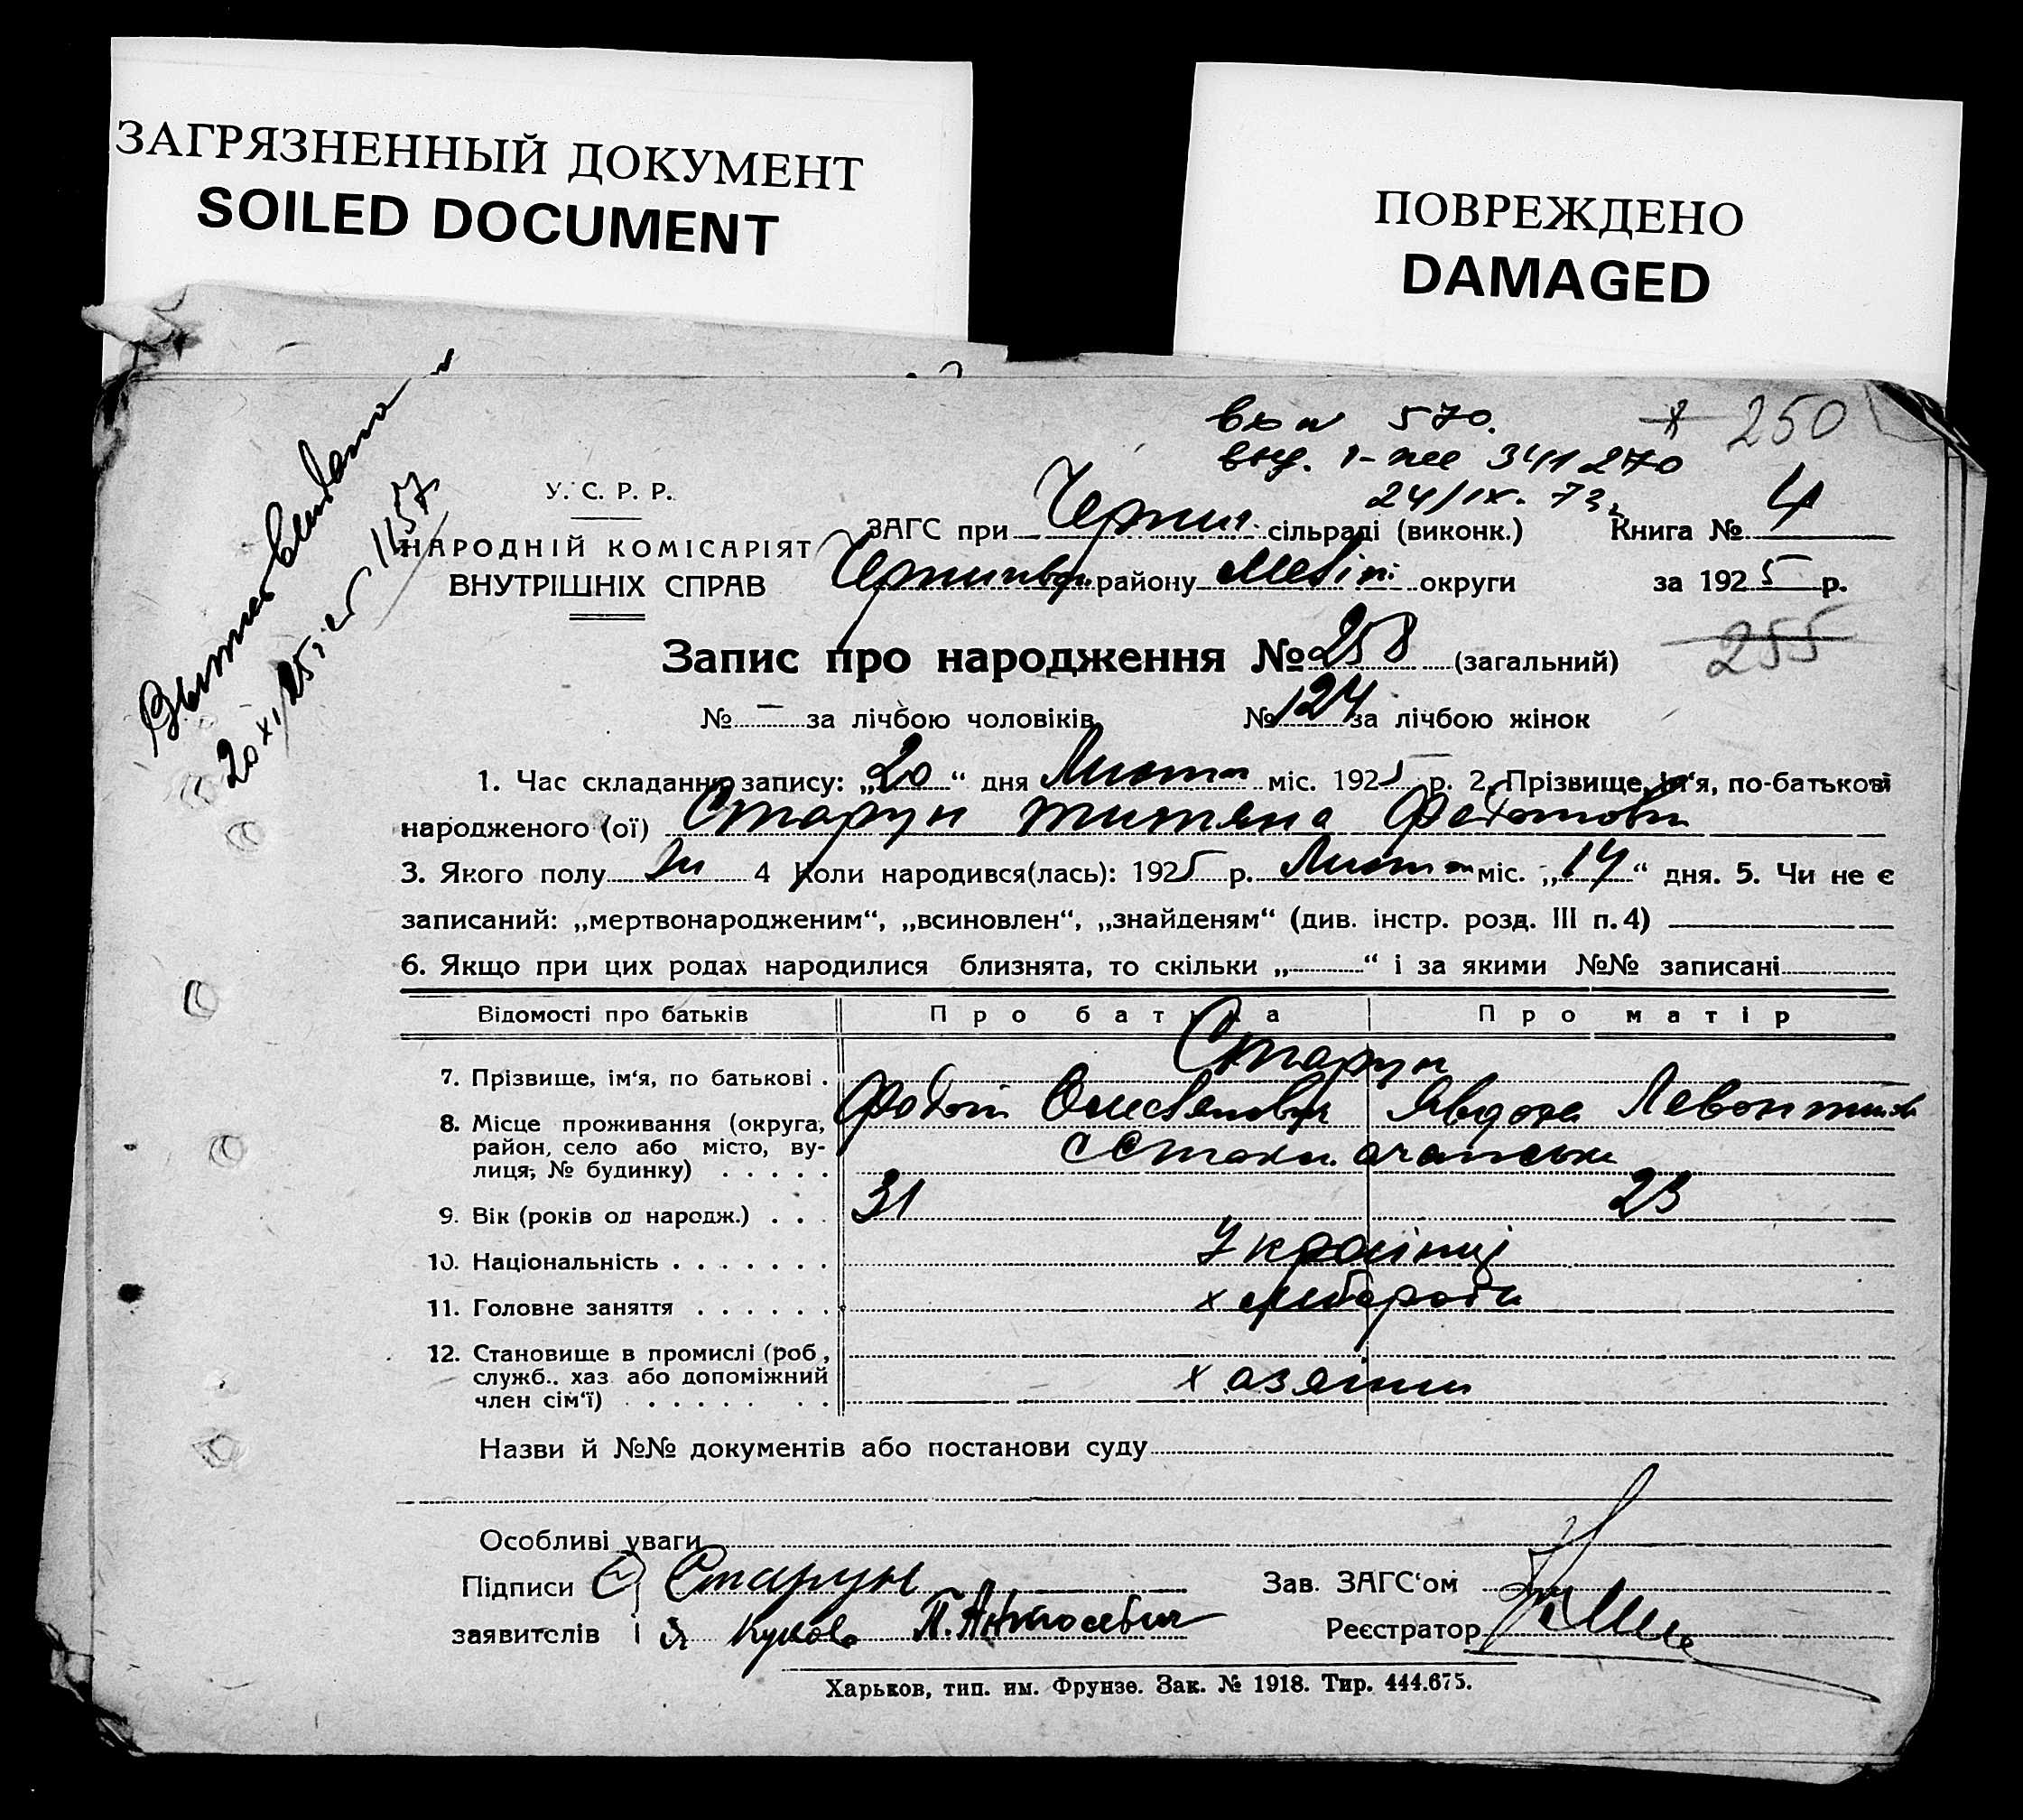 ЗАГРЯЗНЕННЫЙ ДОКУМЕНТ
SOILED DOCUMENT
ПОВРЕЖДЕНО
DAMAGED
570.
250
341270
24/IX. 73
У. С. Р. Р.
НАРОДНІЙ КОМІСАРІЯТ
ВНУТРІШНІХ СПРАВ
ЗАГС при Черниг. сільраді (виконк.) Книга № 4
району округи за 1925 р.
Запис про народження № 258 (загальний)
255
№ — за лічбою чоловіків № 124 за лічбою жінок
1. Час складання запису: „20“ дня Лютого міс. 1925 р. 2. Прізвище, ім‘я, по-батькові
народженого (ої) Старун Титяна Федотовн
3. Якого полу ж 4 Коли народився(лась): 1925 р. Лютого міс. „14“ дня. 5. Чи не є
записаний: „мертвонародженим“, „всиновлен“, „знайденям“ (див. інстр. розд. III п. 4)
6. Якщо при цих родах народилися близнята, то скільки „ “ і за якими №№ записані
Відомості про батьків Про батька Про матір
7. Прізвище, ім‘я, по батькові . Старун
Федот Явдоха
8. Місце проживання (округа,
район, село або місто, ву-
лиця, № будинку) . . . . .
9. Вік (років од народж.) . . . 31 23
10. Національність . . . . . . . Українці
11. Головне заняття . . . . . . хлебороби
12. Становище в промислі (роб,
служб.. хаз. або допоміжний
член сім‘ї) . . . . . . . . хазяіни
Назви й №№ документів або постанови суду
Особливі уваги
Підписи Старун Зав. ЗАГС‘ом
заявителів і Реєстратор
Харьков, тип. им. Фрунзе. Зак. № 1918. Тир. 444.675.